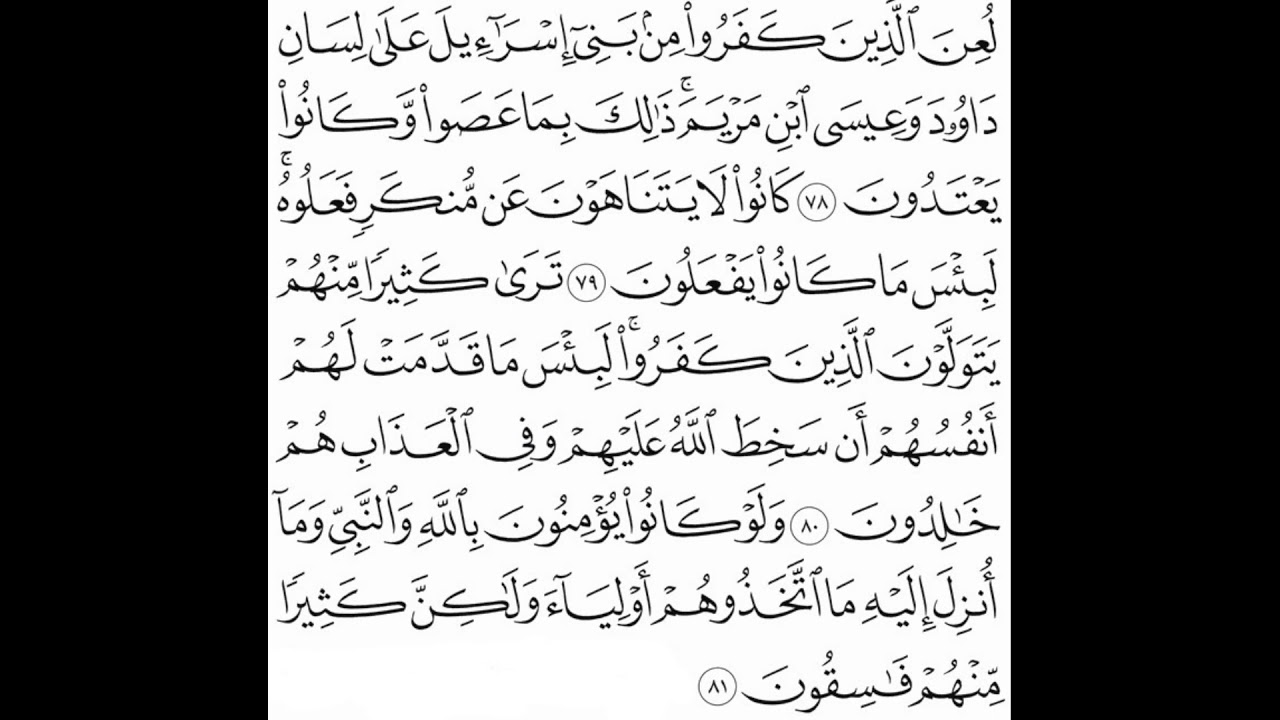 لُعِنَ ٱلَّذِينَ كَفَرُوا۟ مِنۢ بَنِىٓ إِسْرَٰٓءِيلَ عَلَىٰ لِسَانِ
دَاوُۥدَ وَعِيسَى ٱبْنِ مَرْيَمَ ۚ ذَٰلِكَ بِمَا عَصَوا۟ وَّكَانُوا۟
يَعْتَدُونَ ٧٨ كَانُوا۟ لَا يَتَنَاهَوْنَ عَن مُّنكَرٍ فَعَلُوهُ ۚ
لَبِئْسَ مَا كَانُوا۟ يَفْعَلُونَ ٧٩ تَرَىٰ كَثِيرًا مِّنْهُمْ
يَتَوَلَّوْنَ ٱلَّذِينَ كَفَرُوا۟ ۚ لَبِئْسَ مَا قَدَّمَتْ لَهُمْ
أَنفُسُهُمْ أَن سَخِطَ ٱللَّهُ عَلَيْهِمْ وَفِى ٱلْعَذَابِ هُمْ
خَـٰلِدُونَ ٨٠ وَلَوْ كَانُوا۟ يُؤْمِنُونَ بِٱللَّهِ وَٱلنَّبِىِّ وَمَآ
أُنزِلَ إِلَيْهِ مَا ٱتَّخَذُوهُمْ أَوْلِيَآءَ وَلَـٰكِنَّ كَثِيرًا
مِّنْهُمْ فَـٰسِقُونَ ٨١